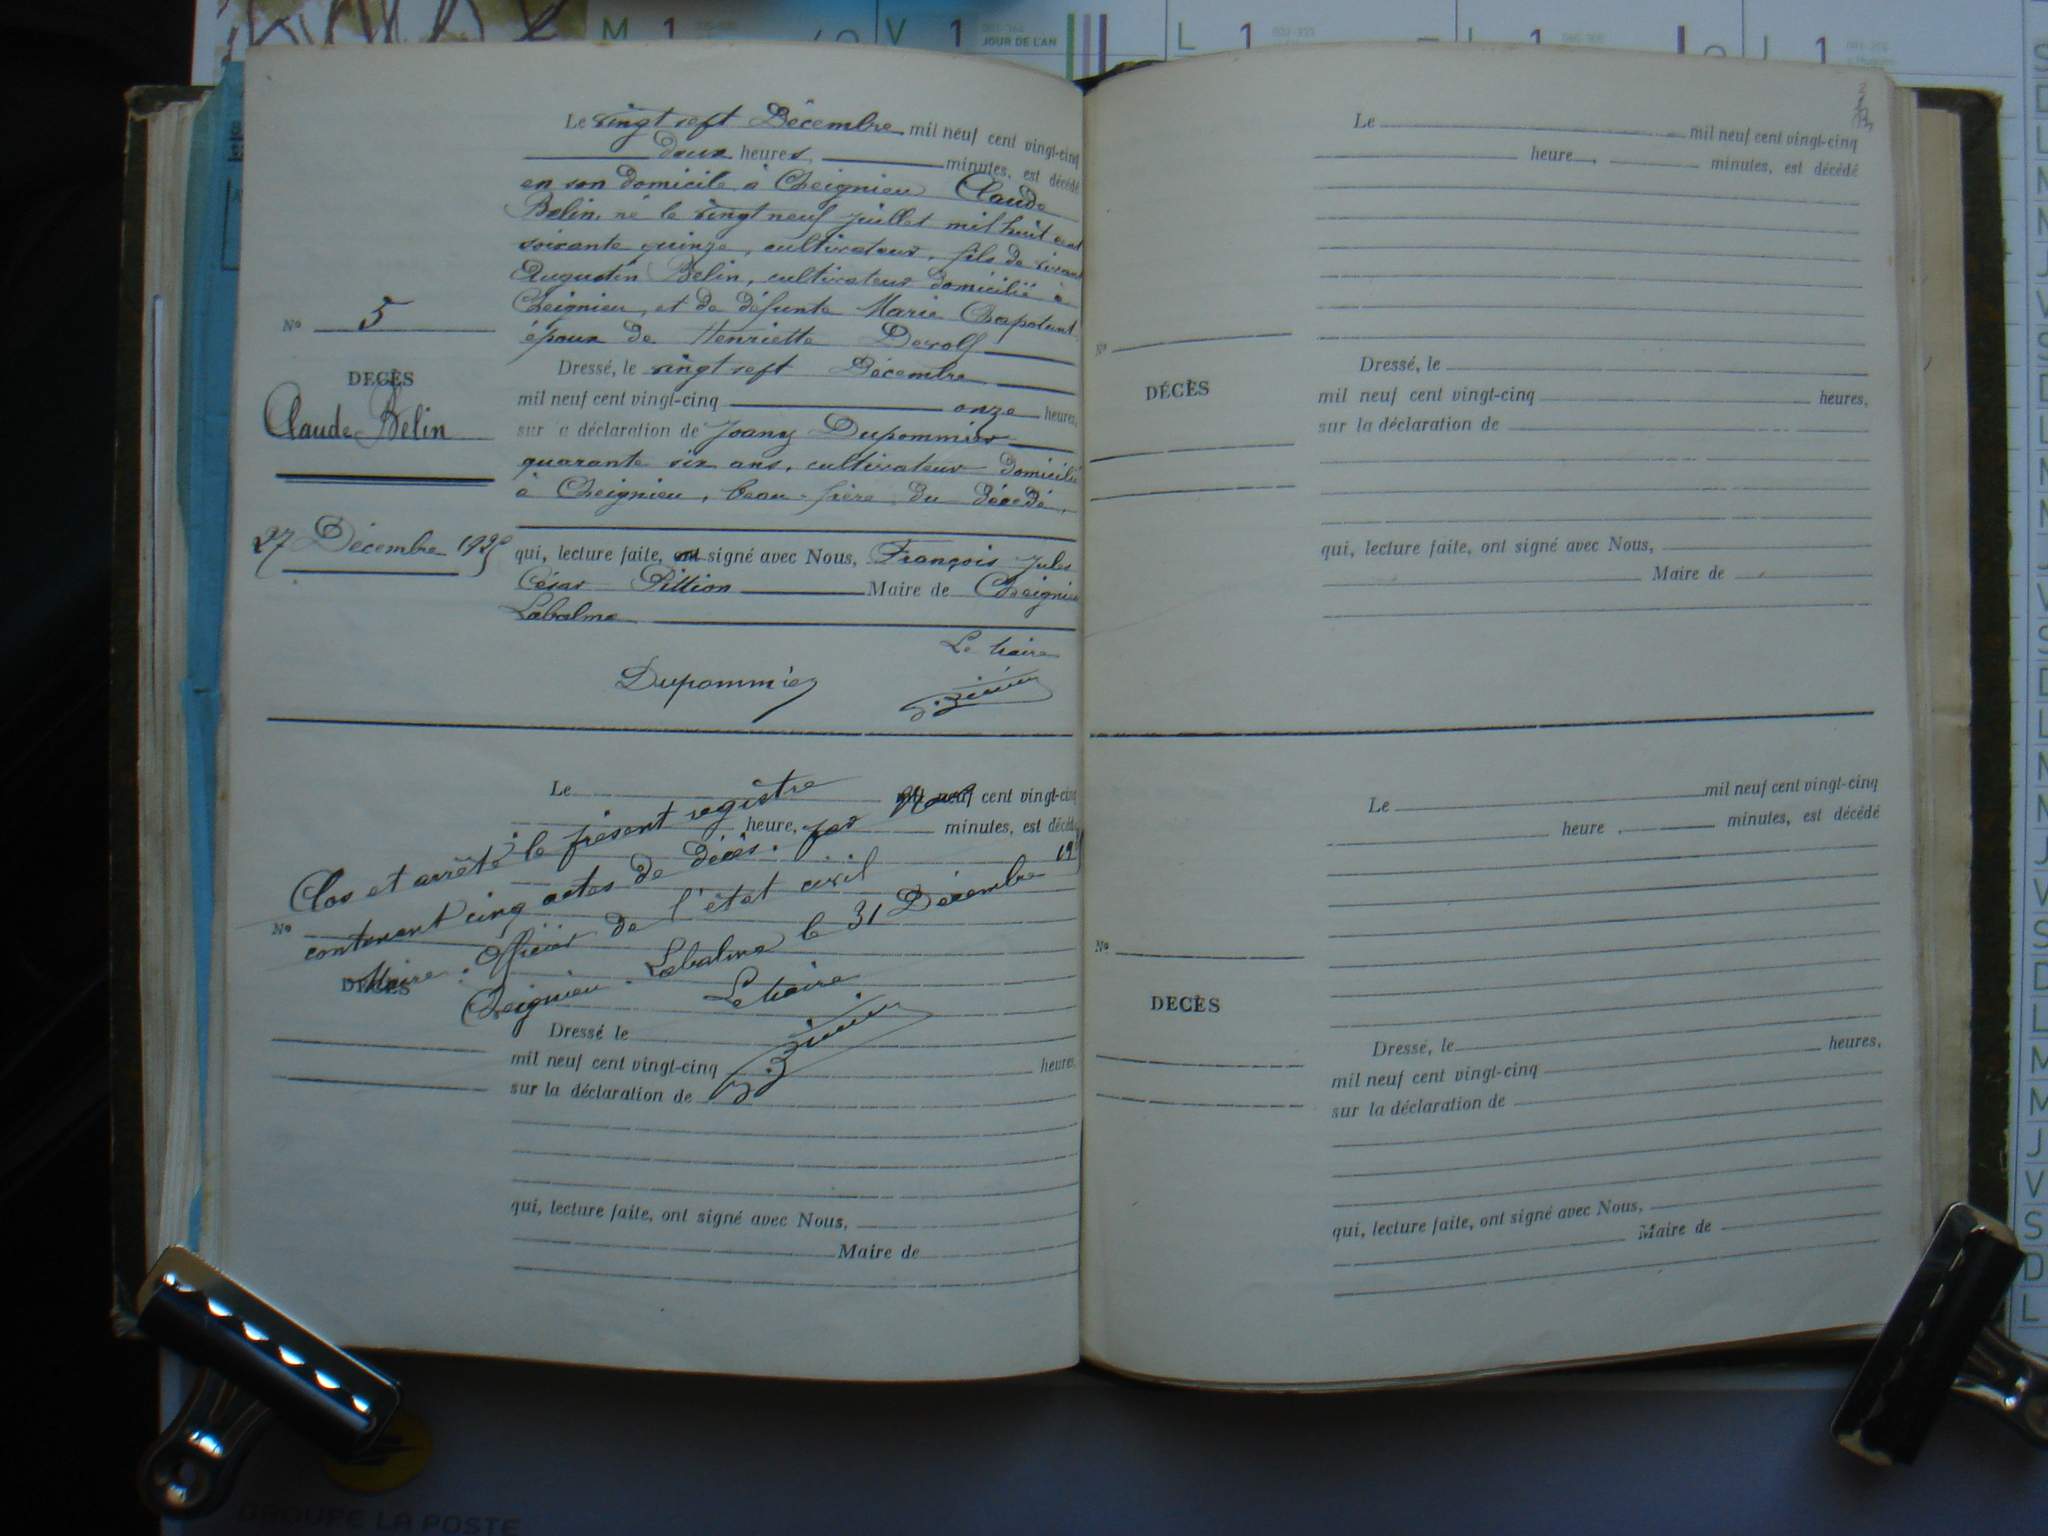 M 1
V 1 JOUR DE L'AN
L 1
L 1
L 1
Le vingt sept Décembre mil neuf cent vingt-cinq
deux heures, minutes, est décédé
en son domicile à Cheignieu Claude
Belin, né le vingt neuf juillet mil huit cent
soixante quinze, cultivateur, fils de vivant
Augustin Belin, cultivateur domicilié à
Cheignieu, et de défunte Marie Chapotant
époux de Henriette
Dressé, le vingt sept Décembre
mil neuf cent vingt-cinq onze heures,
sur a déclaration de Joany Dupommier
quarante six ans, cultivateur domicilié
à Cheignieu, beau-frère du décédé,
qui, lecture faite, ont signé avec Nous, François Jules
César Pittion Maire de Cheignieu
Labalme
Le Maire
Dupommier
No 5
DECÈS
Claude Belin
27 Décembre 1925
Le mil neuf cent vingt-cinq
heure, minutes, est décédé
Clos et arrêté le présent registre
contenant cinq actes de décès, par Nous
Maire, Officier de l'état civil
Cheignieu-Labalme le 31 Décembre 19
Le Maire
No
DÉCÈS
Dressé le
mil neuf cent vingt-cinq heures,
sur la déclaration de
qui, lecture faite, ont signé avec Nous,
Maire de
Le mil neuf cent vingt-cinq
heure, minutes, est décédé
No
DÉCÈS
Dressé, le
mil neuf cent vingt-cinq heures,
sur la déclaration de
qui, lecture faite, ont signé avec Nous,
Maire de
Le mil neuf cent vingt-cinq
heure, minutes, est décédé
No
DECÈS
Dressé, le
mil neuf cent vingt-cinq heures,
sur la déclaration de
qui, lecture faite, ont signé avec Nous,
Maire de
GROUPE LA POSTE